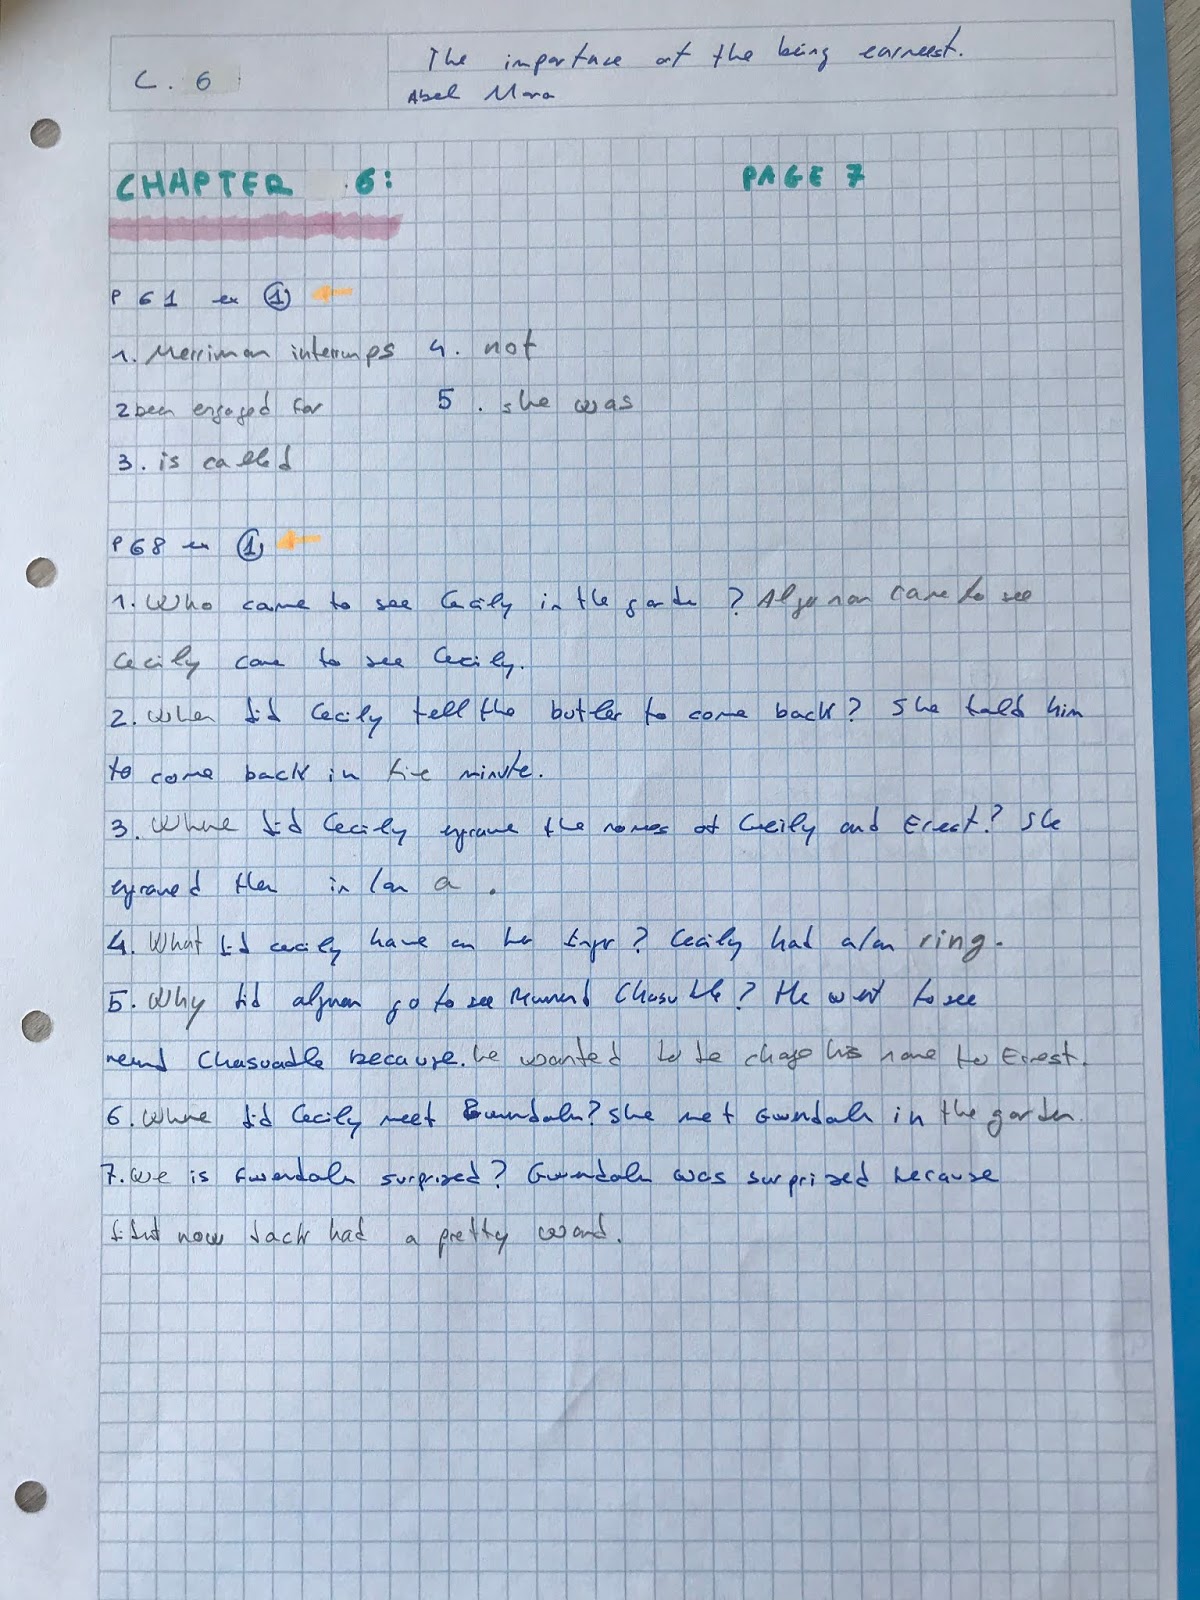 C. 6
The importace of the being earneest.
Abel Mora
CHAPTER .6:
PAGE 7
P 61 ex 1
1. Merriman interrups 4. not
2 been engaged for 5. she was
3. is called
P 68 ex 1
1. Who came to see Cecily in the garden? came to see
Cecily come to see Cecily.
2. When did Cecily tell the butler to come back? She told him
to come back in five minute.
3. Where did Cecily the names of Cecily and Ernest? She
them in/on a .
4. What did cecily have on her finger? Cecily had a/an ring.
5. Why did go to see Chasuble? He went to see
because. he wanted to be his name to Ernest.
6. Where did Cecily meet Gwendolen? She met in the garden.
7. is surprised? was surprised because
now Jack had a pretty ward.